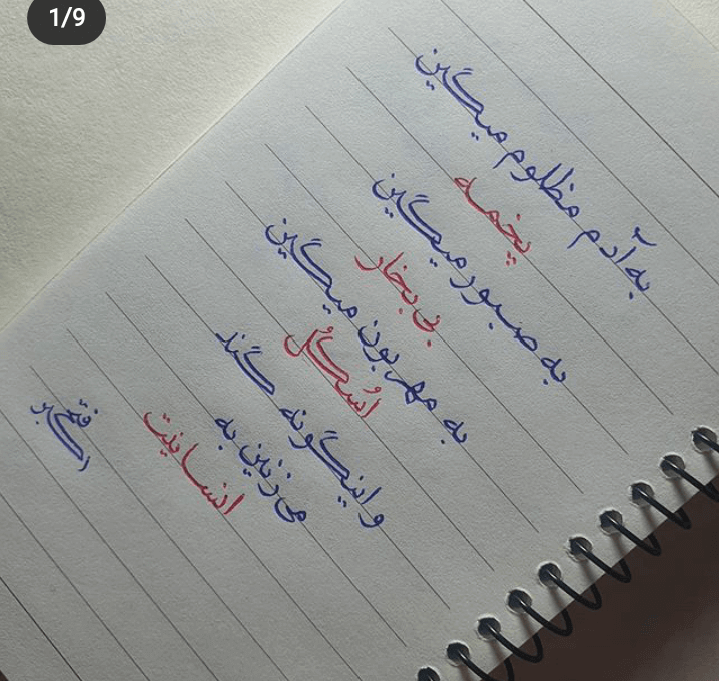 1/9
به آدم مظلوم میگین
پخمه
به صبور میگین
بی بخار
به مهربون میگین
اُسکُل
و اینگونه گند
می زنین به
انسانیت